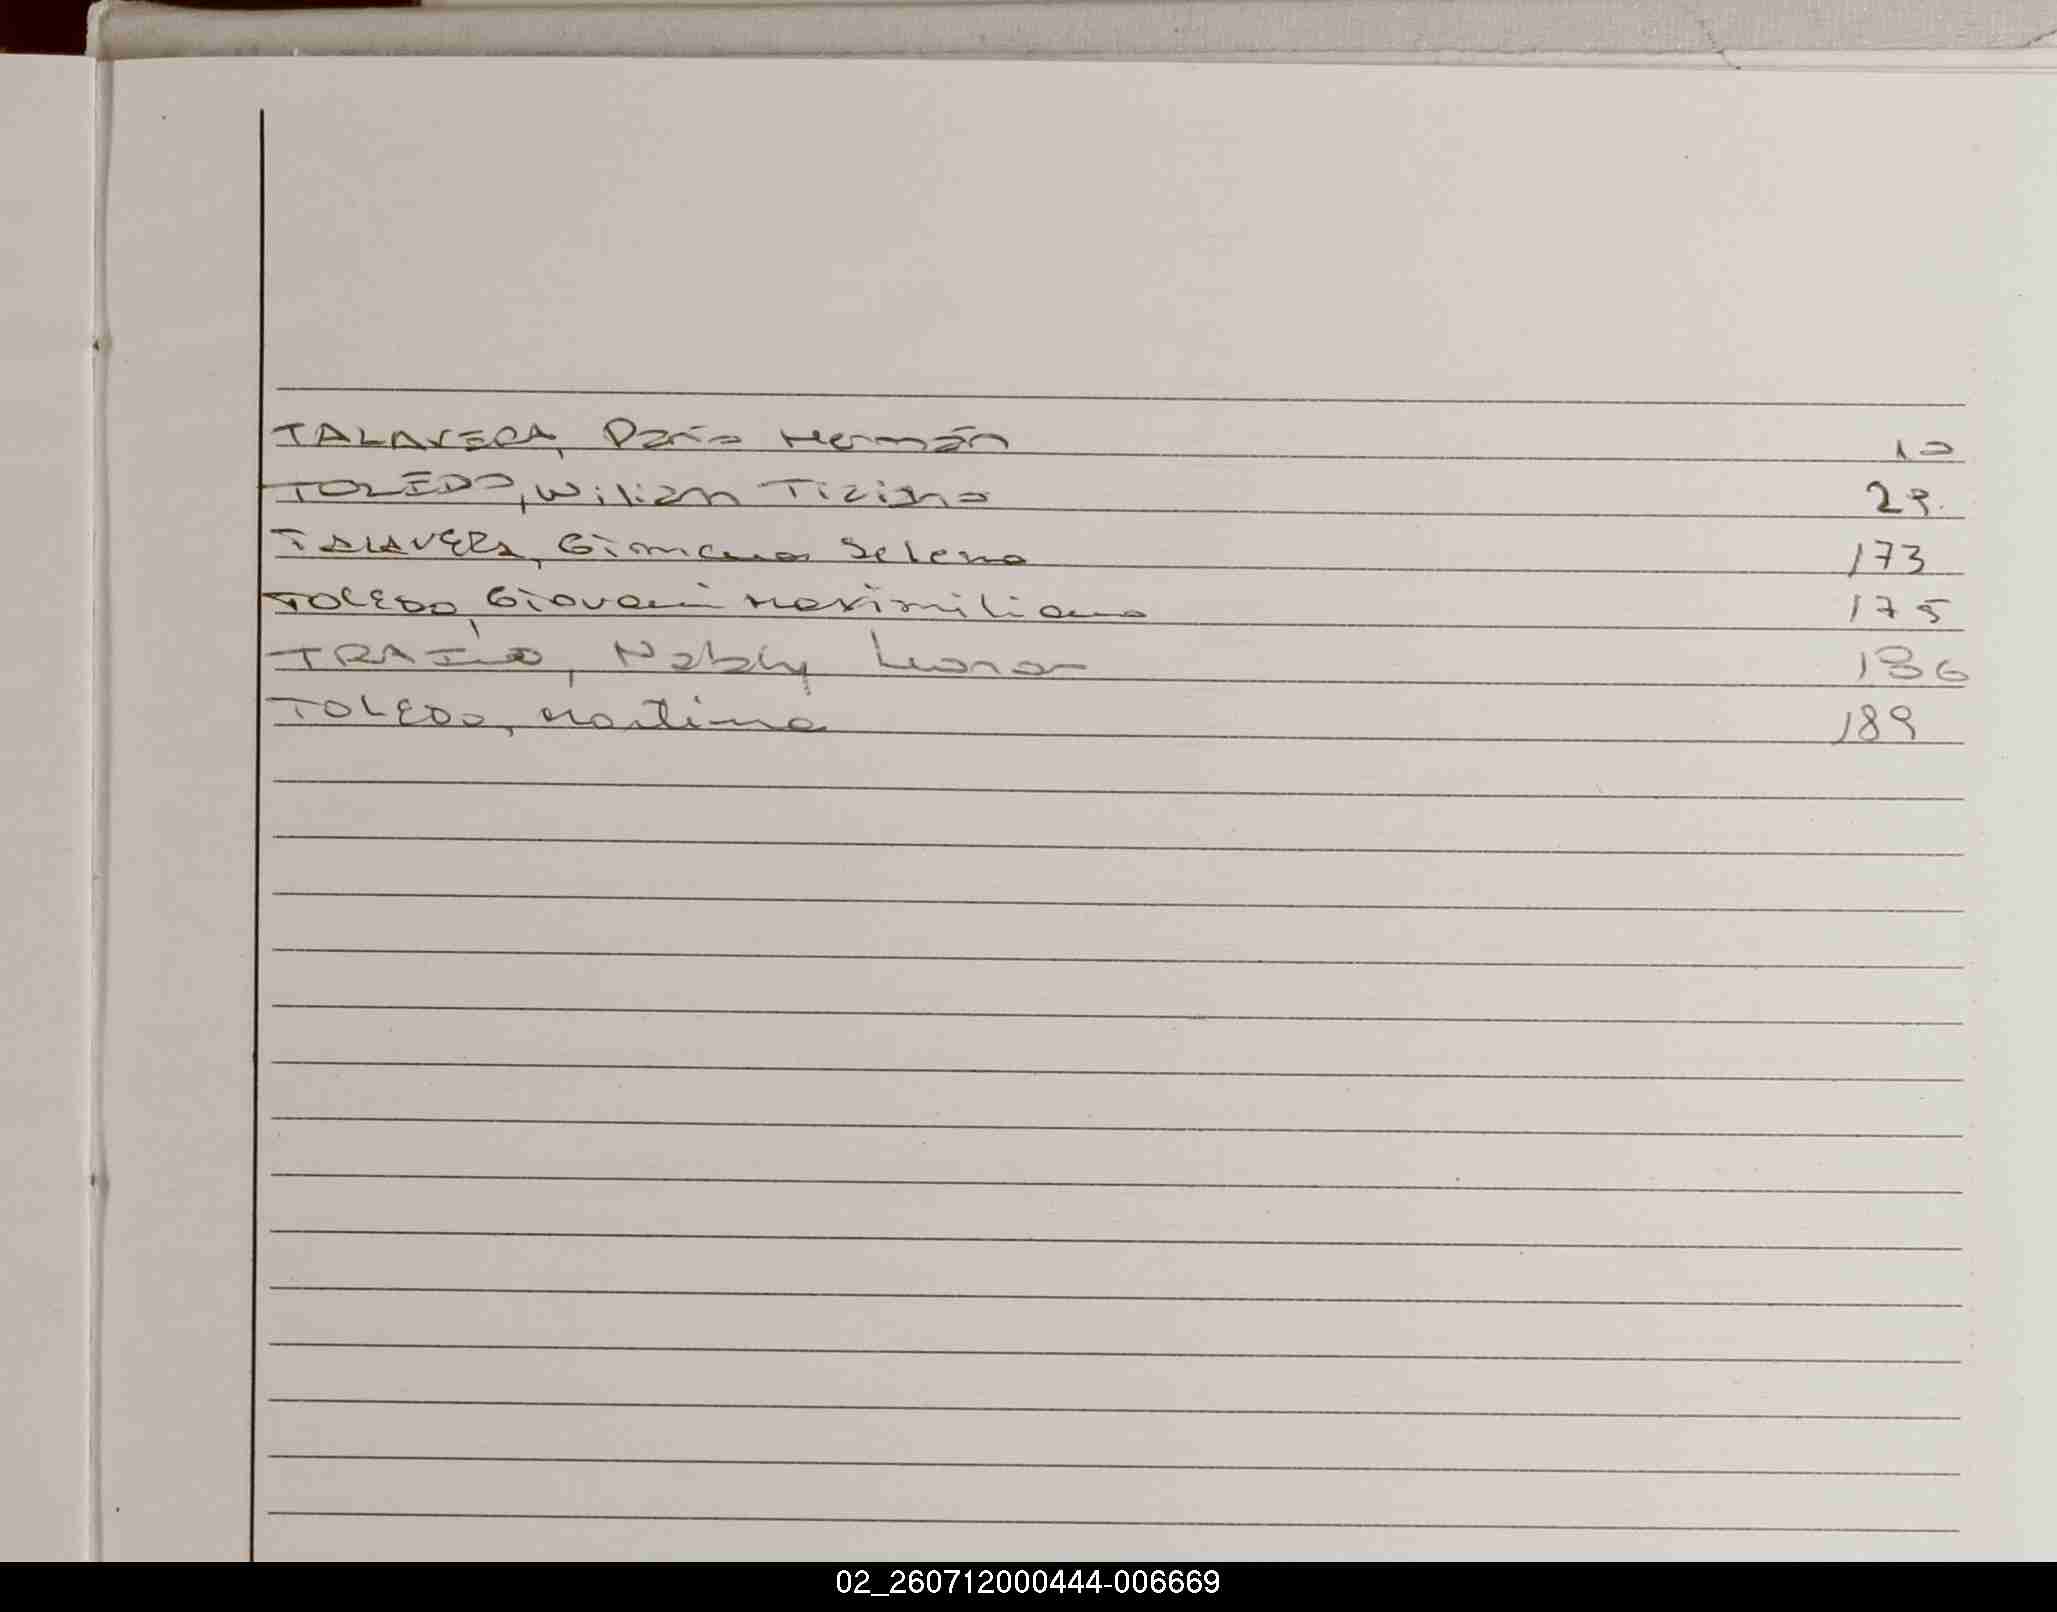 TALAVERA, Darío Hernán 10
TOLEDO, Wilian Tiziano 29.
TALAVERA, Gimena Selena 173
TOLEDO, Giovani Maximiliano 175
TRAID, Nebly Leonor 186
TOLEDO, Martina 189
02_260712000444-006669